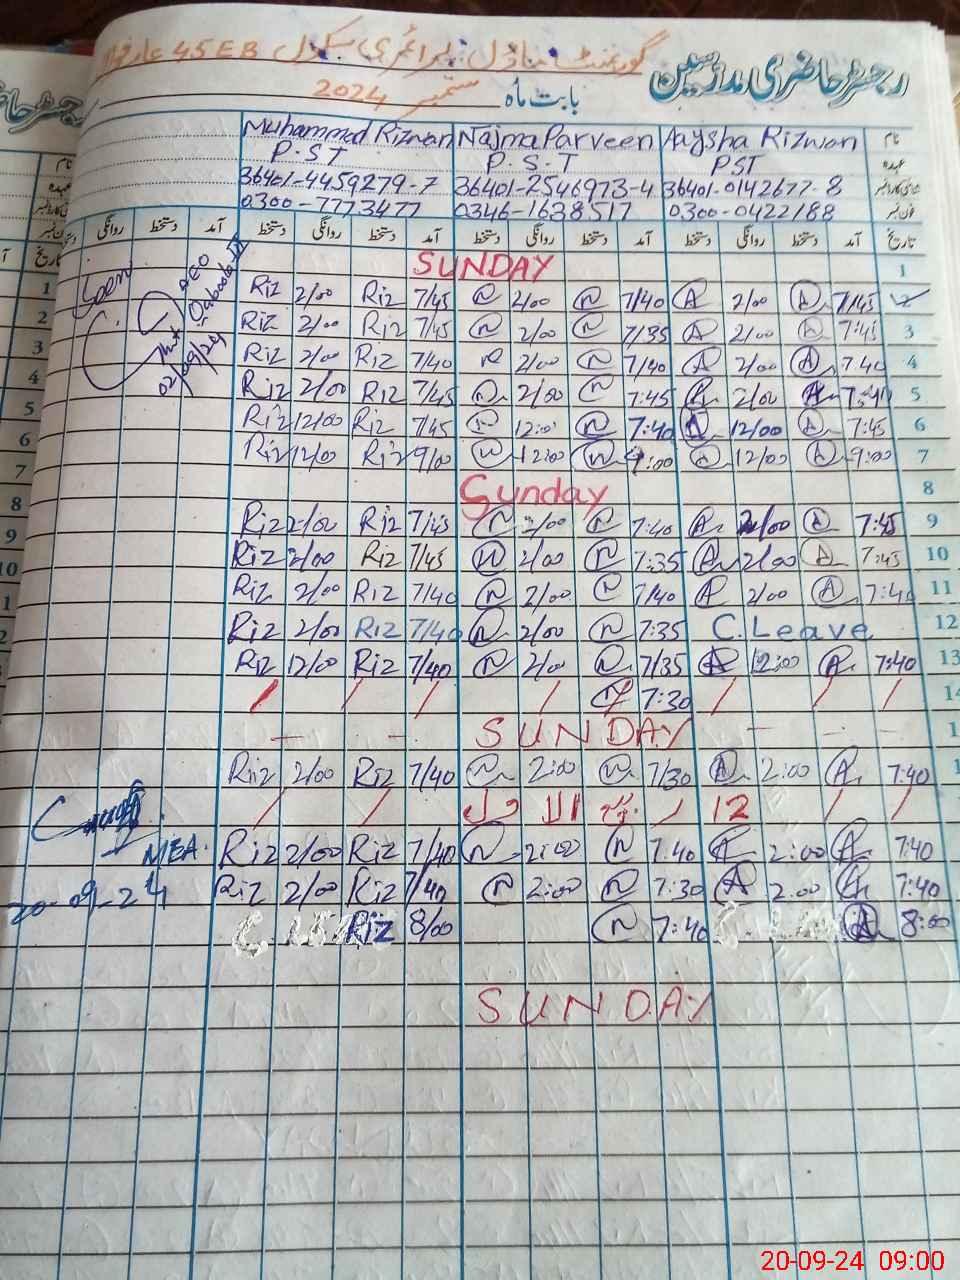 رجسٹر حاضری مدرسین
گورنمنٹ ماڈل پرائمری سکول 45EB عارفوالا
بابت ماہ ستمبر 2024
نام Muhammad Rizwan Najma Parveen Aaysha Rizwan
عہدہ P.S.T P.S.T PST
36401-4459279-7 36401-2546973-4 36401-0142677-8
فون نمبر 0300-7773477 0346-1638517 0300-0422188
تاریخ آمد دستخط روانگی دستخط آمد دستخط روانگی دستخط آمد دستخط روانگی دستخط آمد دستخط روانگی
SUNDAY 1
Seen
AEO
02/09/24
Riz 2/00 Riz 7/45 N 2/00 N 7/40 A 2/00 A 7/45
Riz 2/00 Riz 7/45 N 2/00 N 7/35 A 2/00 A 7:45 3
Riz 2/00 Riz 7/40 N 2/00 N 7/40 A 2/00 A 7:40 4
Riz 2/00 Riz 7/45 N 2/00 N 7:45 A 2/00 A 7:40 5
Riz 12/00 Riz 7/45 N 12:00 N 7:40 A 12/00 A 7:45 6
Riz 12/00 Riz 9/00 N 12:00 N 9:00 A 12/00 A 9:00 7
Sunday 8
Riz 2/00 Riz 7/45 N 2/00 N 7:40 A 2/00 A 7:45 9
Riz 2/00 Riz 7/45 N 2/00 N 7:35 A 2/00 A 7:45 10
Riz 2/00 Riz 7/40 N 2/00 N 7/40 A 2/00 A 7:40 11
Riz 2/00 Riz 7/40 N 2/00 N 7:35 C.Leave 12
Riz 12/00 Riz 7/40 N 2/00 N 7/35 A 12:00 A 7:40 13
N 7:30 14
SUNDAY
Riz 2/00 Riz 7/40 N 2:00 N 7/30 A 2:00 A 7:40
12 ربیع الاول
Riz 2/00 Riz 7/40 N 2:00 N 7:40 A 2:00 A 7:40
MEA.
Riz 2/00 Riz 7/40 N 2:00 N 7:30 A 2.00 A 7:40
20-09-24
Riz 8/00 N 7:40 A 8:00
SUNDAY
20-09-24 09:00